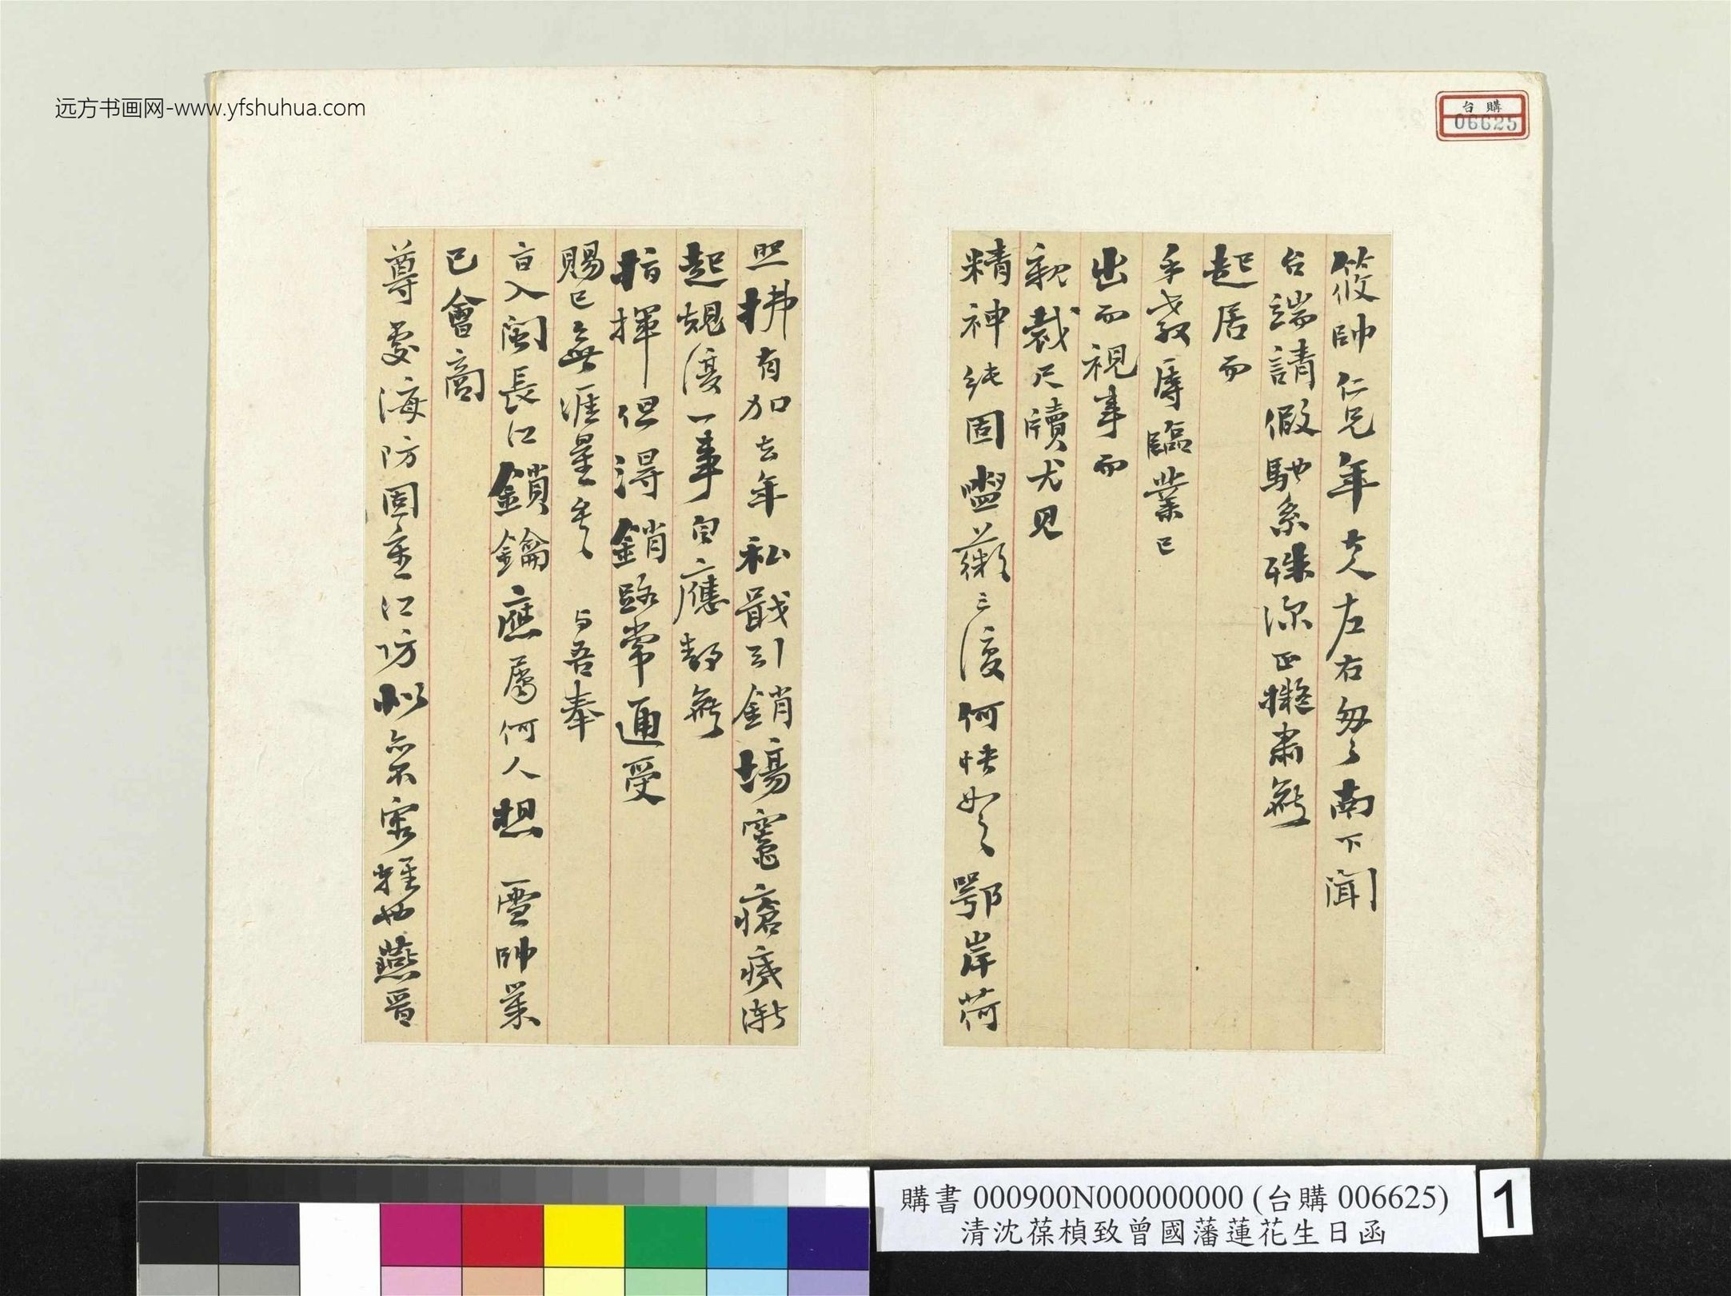 远方书画网-www.yfshuhua.com
台購
06625
筱帥仁兄年大人左右匆匆南下聞
台端請假馳系殊深正擬肅敏
起居而
手教辱臨業已
出而視事而
親裁尺牘尤見
精神純固盥薇三復何快如之鄂岸荷
照拂有加去年私戥引銷場竈瘡痍漸
起規復一事自應靜無
指揮但得銷路常通受
賜已無涯量矣 与吾奉
旨入閩長江鎖鑰應屬何人想 雪帥業
已會商
尊處海防固重江防似亦不容輕也燕晉
購書 000900N000000000 (台購 006625)
清沈葆楨致曾國藩蓮花生日函
1